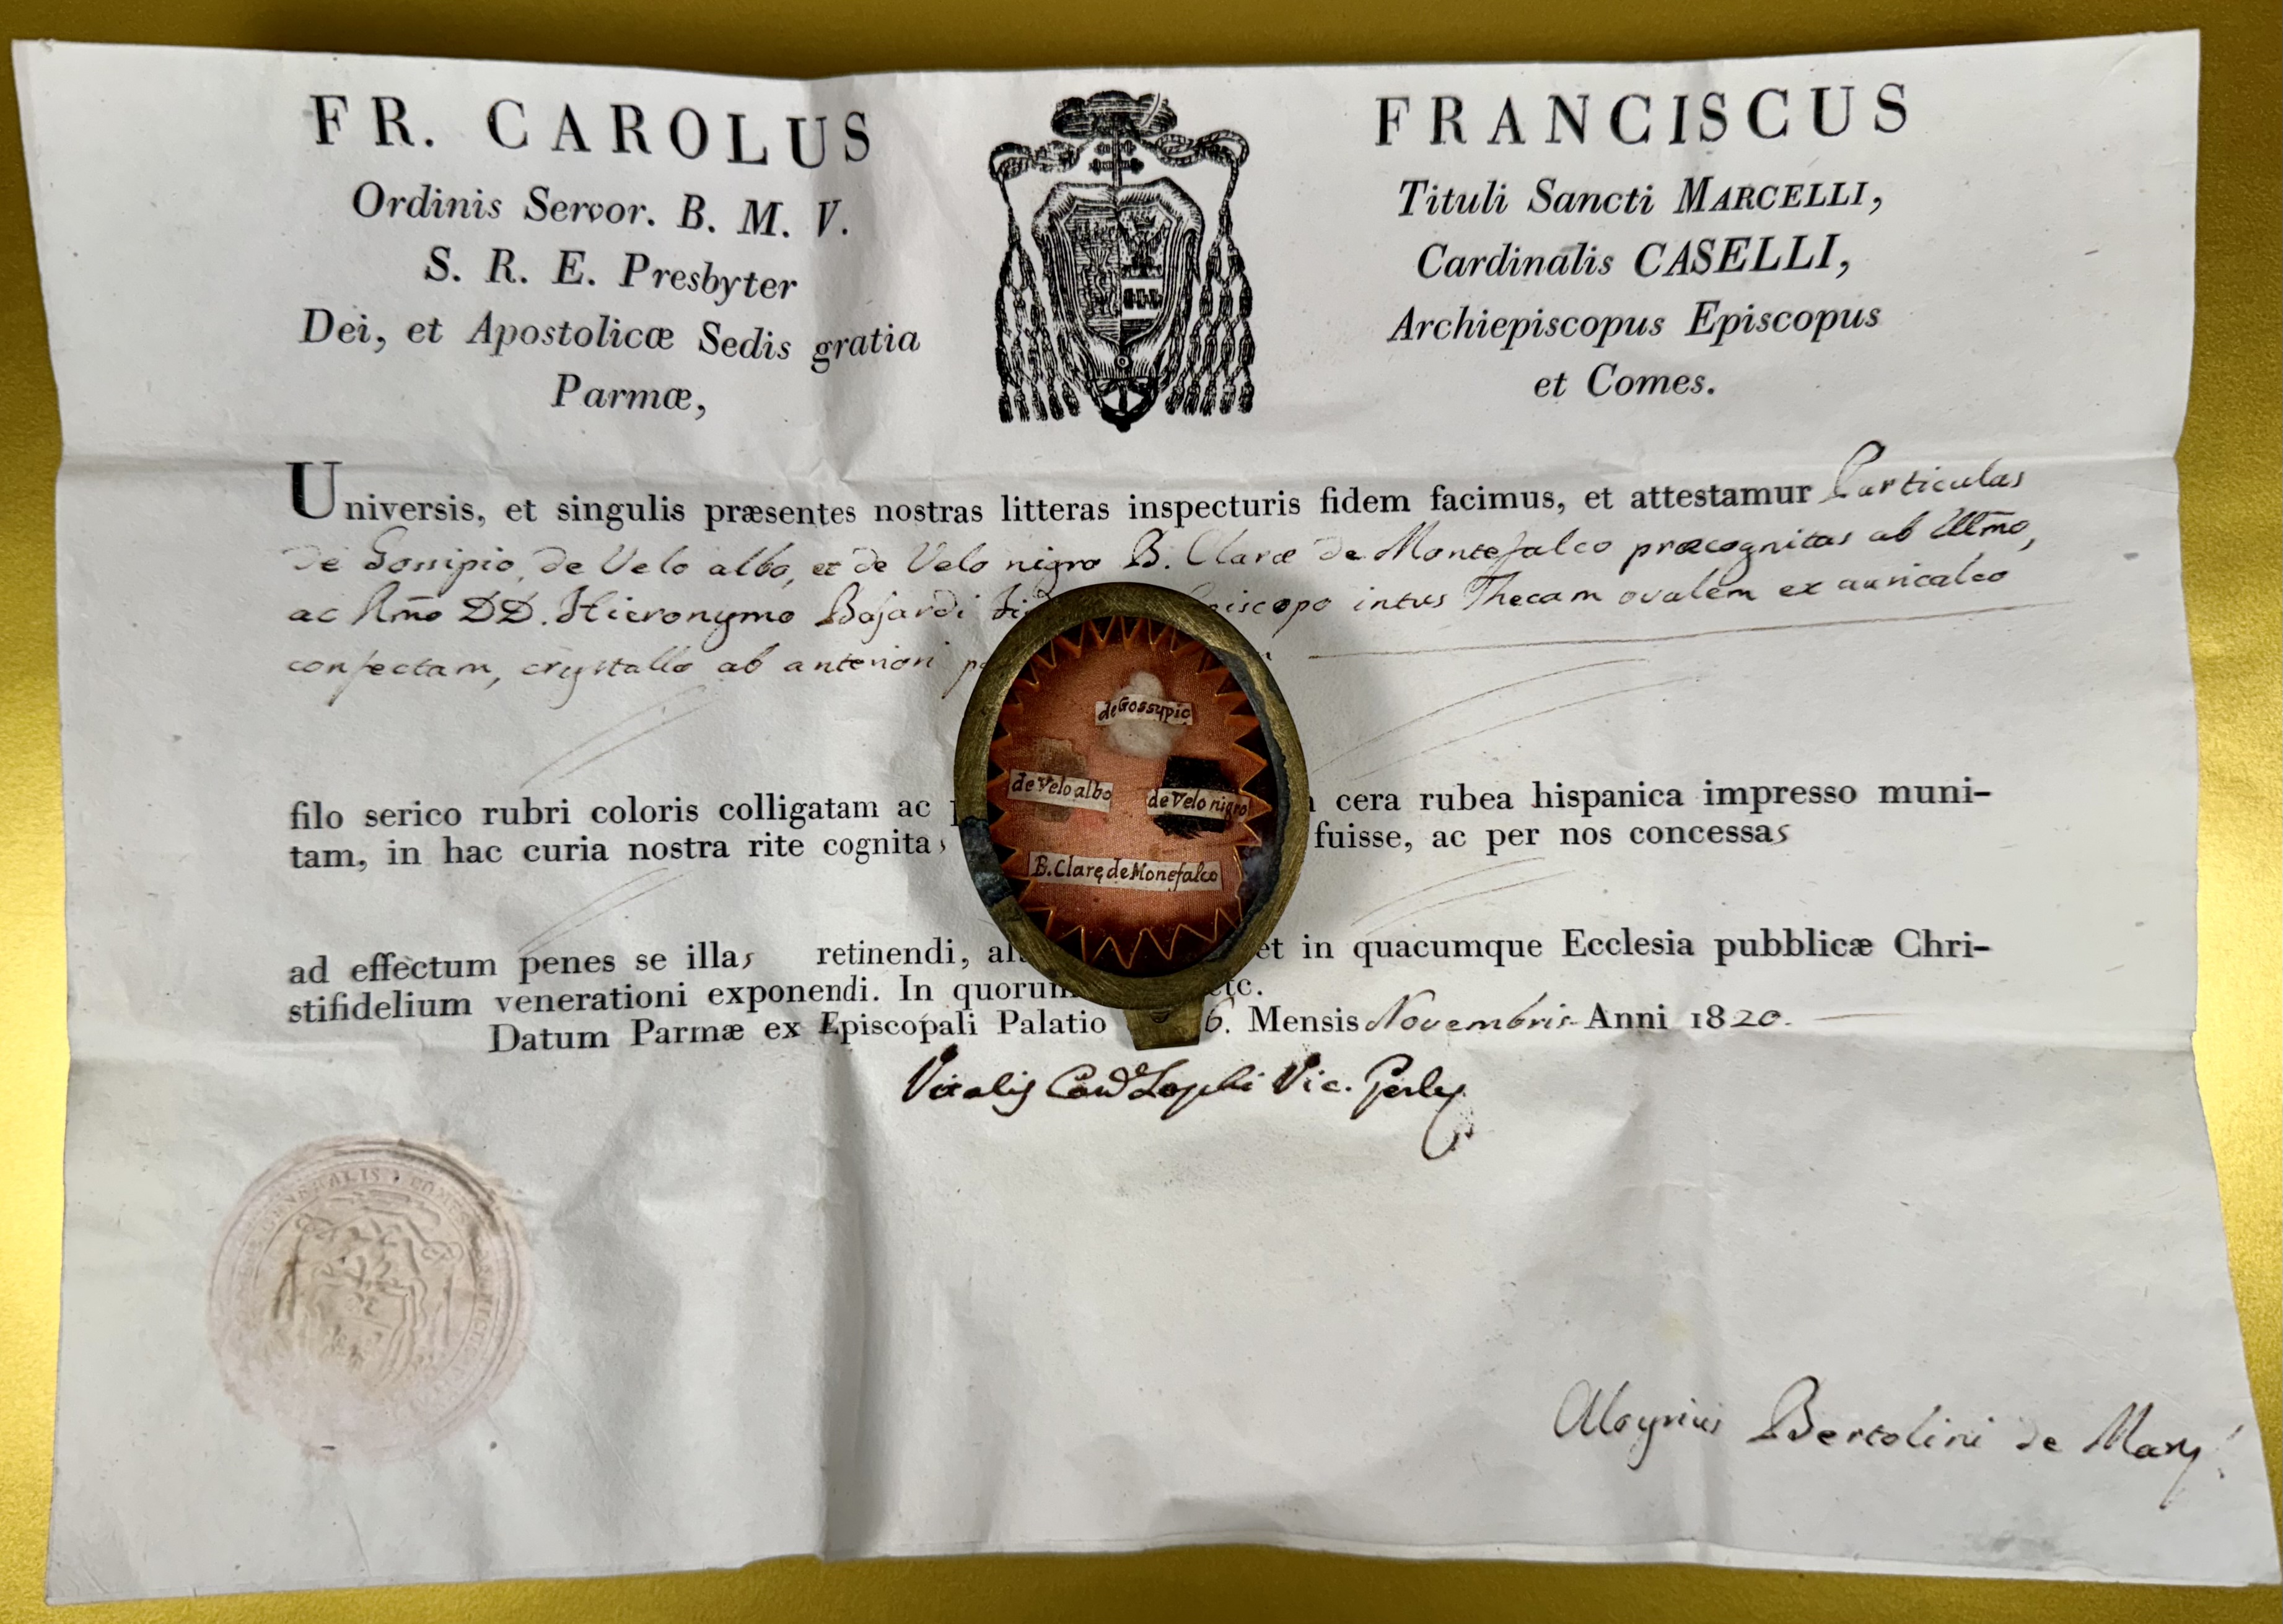 FR. CAROLUS
Ordinis Servor. B. M. V.
S. R. E. Presbyter
Dei, et Apostolicæ Sedis gratia
Parmæ,
FRANCISCUS
Tituli Sancti MARCELLI,
Cardinalis CASELLI,
Archiepiscopus Episcopus
et Comes.
Universis, et singulis præsentes nostras litteras inspecturis fidem facimus, et attestamur Particulas
de Gossipio, de Velo albo, et de Velo nigro B. Claræ de Montefalco præcognitas ab Illm̃o,
ac Rm̃o DD. Hieronymo Bajardi intus Thecam ovalem ex auricalco
confectam, crystallo ab anteriori
filo serico rubri coloris colligatam ac cera rubea hispanica impresso muni-
tam, in hac curia nostra rite cognitas fuisse, ac per nos concessas
ad effectum penes se illas retinendi, et in quacumque Ecclesia pubblicæ Chri-
stifidelium venerationi exponendi. In quorum etc.
Datum Parmæ ex Episcopali Palatio 6. Mensis Novembris Anni 1820.
de Gossypio
de Velo albo
de Velo nigro
B. Clarę de Monefalco
Vitalis Vic. Gñlis
Aloysius Bertolini de